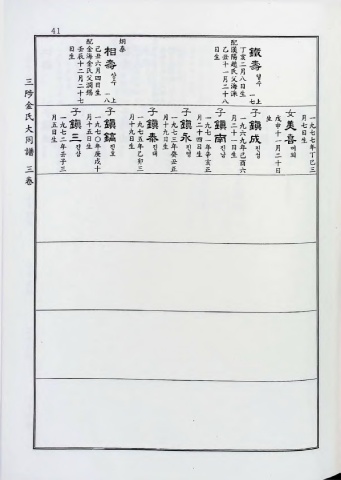 41
三陟金氏大同譜 三卷
鐵壽 철수
丁亥二月八日生
配漢陽趙氏父海洙
乙丑十一月二十八
日生
상수
相壽
己丑六月四日生
配金海金氏父潤錫
壬辰十二月二十七
日生
一九七七年丁巳三
月七日生
女 美喜 미희
戊申十一月二十日
生
子 鎭成 진성
一九六九年己酉六
月二十一日生
子 鎭南 진남
一九七一年辛亥正
月二十四日生
子 鎭永 진영
一九七三年癸丑正
月十九日生
子 鎭泰 진태
一九七五年乙卯三
月十九日生
子 鎭鎬 진호
一九七〇年庚戌十
月十五日生
子 鎭三 진삼
一九七二年壬子三
月五日生